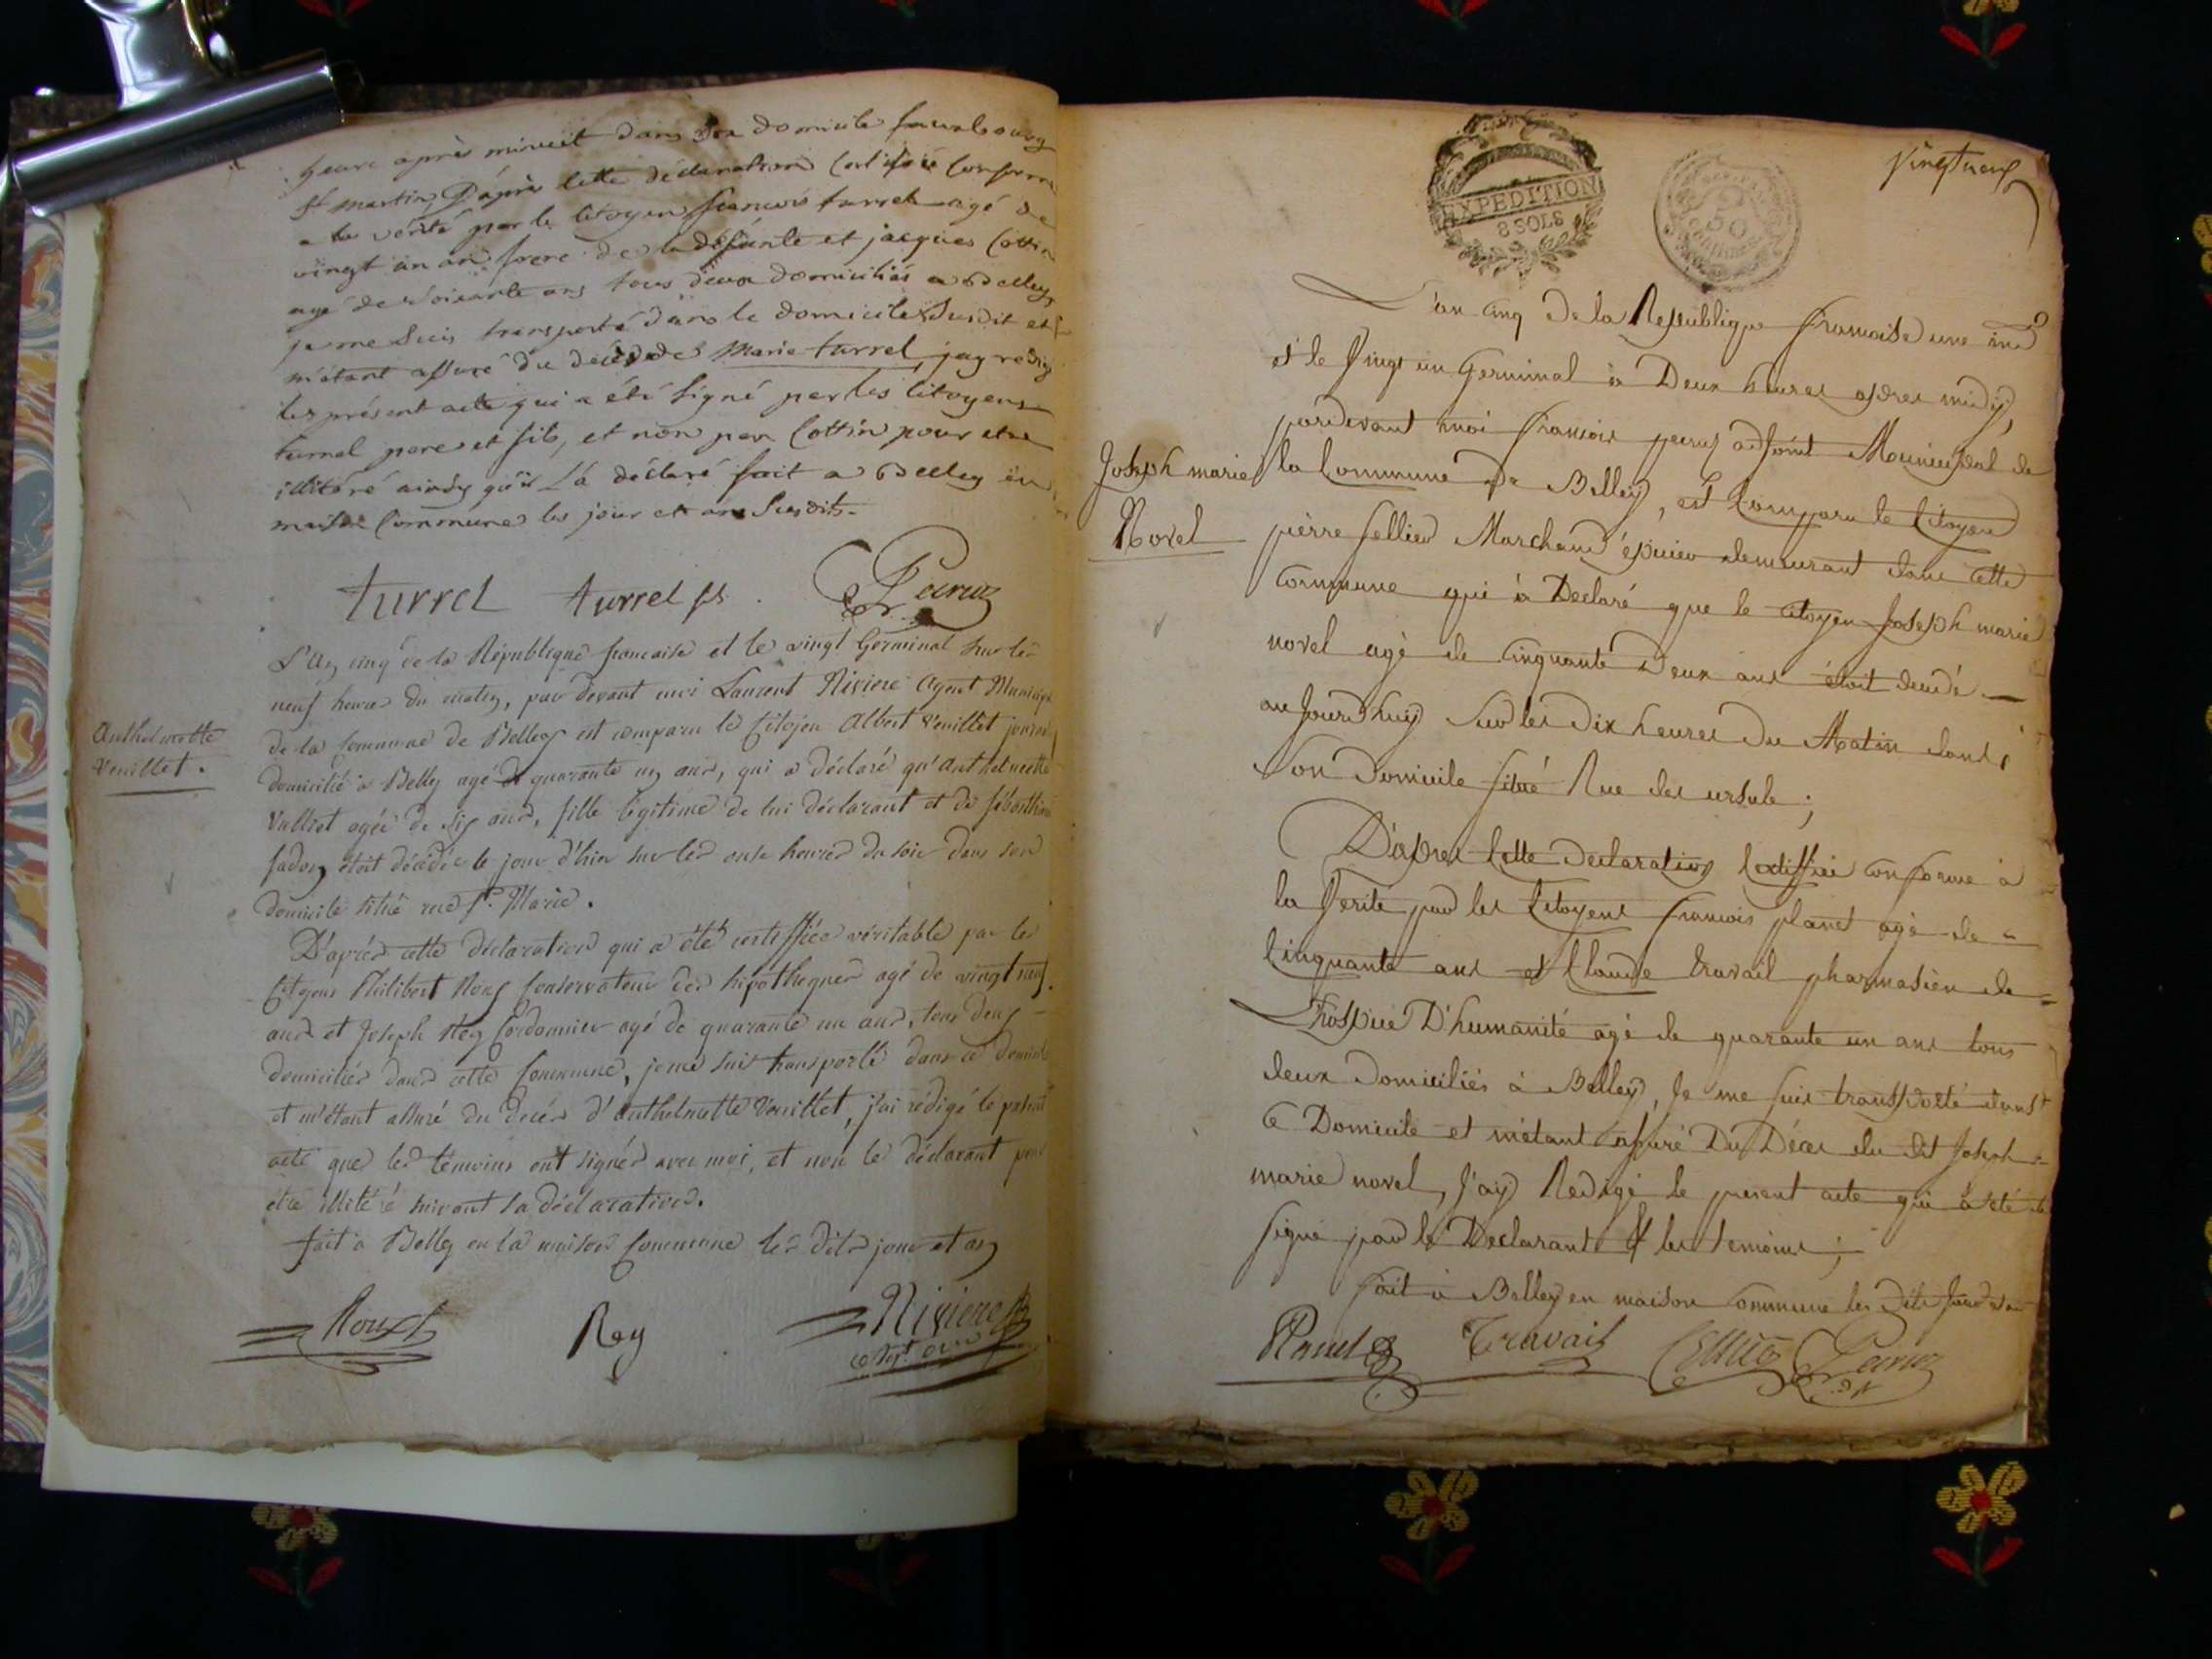 heure après minuit dans son domicile fauxbourg
st martin, D'après cette déclaration certifiée conforme
a la vérité par le citoyen francois turrel agé de
vingt un an frere de la défunte et jacques Cottin
agé de soixante ans tous deux domiciliés a Belley
je me suis transporté dans le domicile susdit et
m'étant assuré du décès de Marie turrel, j'ay rédigé
le présent acte qui a été signé par les citoyens
turrel pere et fils, et non par Cottin pour etre
illitéré ainsy qu'il L'a déclaré fait a Belley en
maison Commune les jour et an susdits.
turrel turrel fils Peiruz
L'an cinq de la République francaise et le vingt Germinal sur les
neuf heures du matin, par devant moi Laurent Riviere Agent Municipal
de la Commune de Belley est comparu le Citoyen Albert Veuillet
Anthelmette
Veuillet.
domicilié à Belley agé de quarante un ans, qui a déclaré qu'anthelmette
Vulliet agée de six ans, fille légitime de lui déclarant et de
fadoz étoit décédée le jour d'hier sur les onze heures du soir dans son
domicile situé rue Ste. Marie.
D'après cette déclaration qui a été certiffiée véritable par les
Citoyens Philibert Roux Conservateur des hipotheques agé de vingt neuf
ans et Joseph Rey Cordonnier agé de quarante un ans, tous deux
domiciliés dans cette Commune, je me suis transporté dans ce domicile
et m'étant assuré du decés d'anthelmette Veuillet, j'ai rédigé le présent
acte que les témoins ont signés avec moi, et non le déclarant pour
etre illitéré suivant sa déclaration.
fait à Belley en la maison Commune les dits jour et an
Roux Rey Riviere
agt.
EXPEDITION
8 SOLS
50
CENTIMES
Vingt neuf
L'an cinq De la Republique francaise une ind
et le vingt un Germinal à Deux heures apres midy,
pardevant moi francois peiruz adjoint Municipal de
Joseph marie
Novel
la Commune De Belley, est Comparu le Citoyen
pierre sellier Marchand épicier demeurant dans cette
commune qui à Declaré que le citoyen Joseph marie
novel agé de cinquante Deux ans étoit decedé
au Jourdhuy sur les Dix heures Du Matin dans
son Domicile situé Rue des ursule ;
D'apres Cette Declaration Certiffiée conforme à
la Verité par les Citoyens francois planet agé de
Cinquante ans et Claude travail pharmasien de
L'hospice D'humanité agé de quarante un ans tous
deux Domiciliés à Belley, Je me suis transporté dans
ce Domicile et m'étant assuré Du Déces du dit Joseph
marie novel, J'ay Redigé le present acte qui à été
signé par le Declarant & les temoins ;
fait à Belley en maison commune les dits Jour et an
Planet Travail Sellier Peiruz
adjt